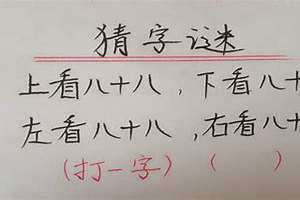 猜字谜
上看八十八，下看八十
左看八十八，右看八十
(打一字) ( )